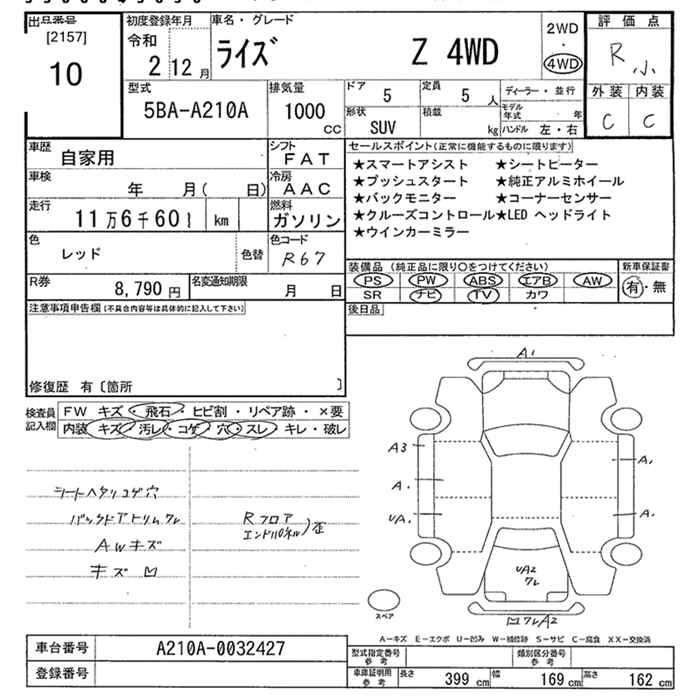 出品番号
[2157]
10
初度登録年月
令和
2 12月
車名・グレード
ライズ Z 4WD
2WD
・
4WD
評価点
R 小
外装 内装
C C
型式
5BA-A210A
排気量
1000
CC
ドア
5
定員
5 人
形状
SUV
積載
kg
ディーラー・並行
モデル年式 年
ハンドル 左・右
車歴
自家用
シフト
FAT
車検
年 月( 日)
冷房
AAC
走行
11万6千601 km
燃料
ガソリン
色
レッド
色替
色コード
R67
R券
8,790 円
名変通知期限
月 日
セールスポイント(正常に機能するものに限ります)
★スマートアシスト ★シートヒーター
★プッシュスタート ★純正アルミホイール
★バックモニター ★コーナーセンサー
★クルーズコントロール★LED ヘッドライト
★ウインカーミラー
装備品 (純正品に限り○をつけてください)
PS PW ABS エアB AW
SR ナビ TV カワ
新車保証書
有・無
後日品
注意事項申告欄(不具合内容等は具体的に記入して下さい)
修復歴 有〔箇所 〕
検査員記入欄
FW キズ・飛石・ヒビ割・リペア跡・×要
内装 キズ・汚レ・コゲ・穴・スレ・キレ・破レ
シートヘタリコゲ穴
バックドアトリムワレ
AWキズ
キズ凹
Rフロア
エンドパネル)歪
A1
A3
A.
UA.
A.
A.
UA2
ワレ
凹ワレA2
スペア
A－キズ E－エクボ U－凹ミ W－補修跡 S－サビ C－腐食 XX－交換済
車台番号
A210A-0032427
登録番号
型式指定番号
参考
類別区分番号
参考
車庫証明用
参考
長さ 399 cm
幅 169 cm
高さ 162 cm